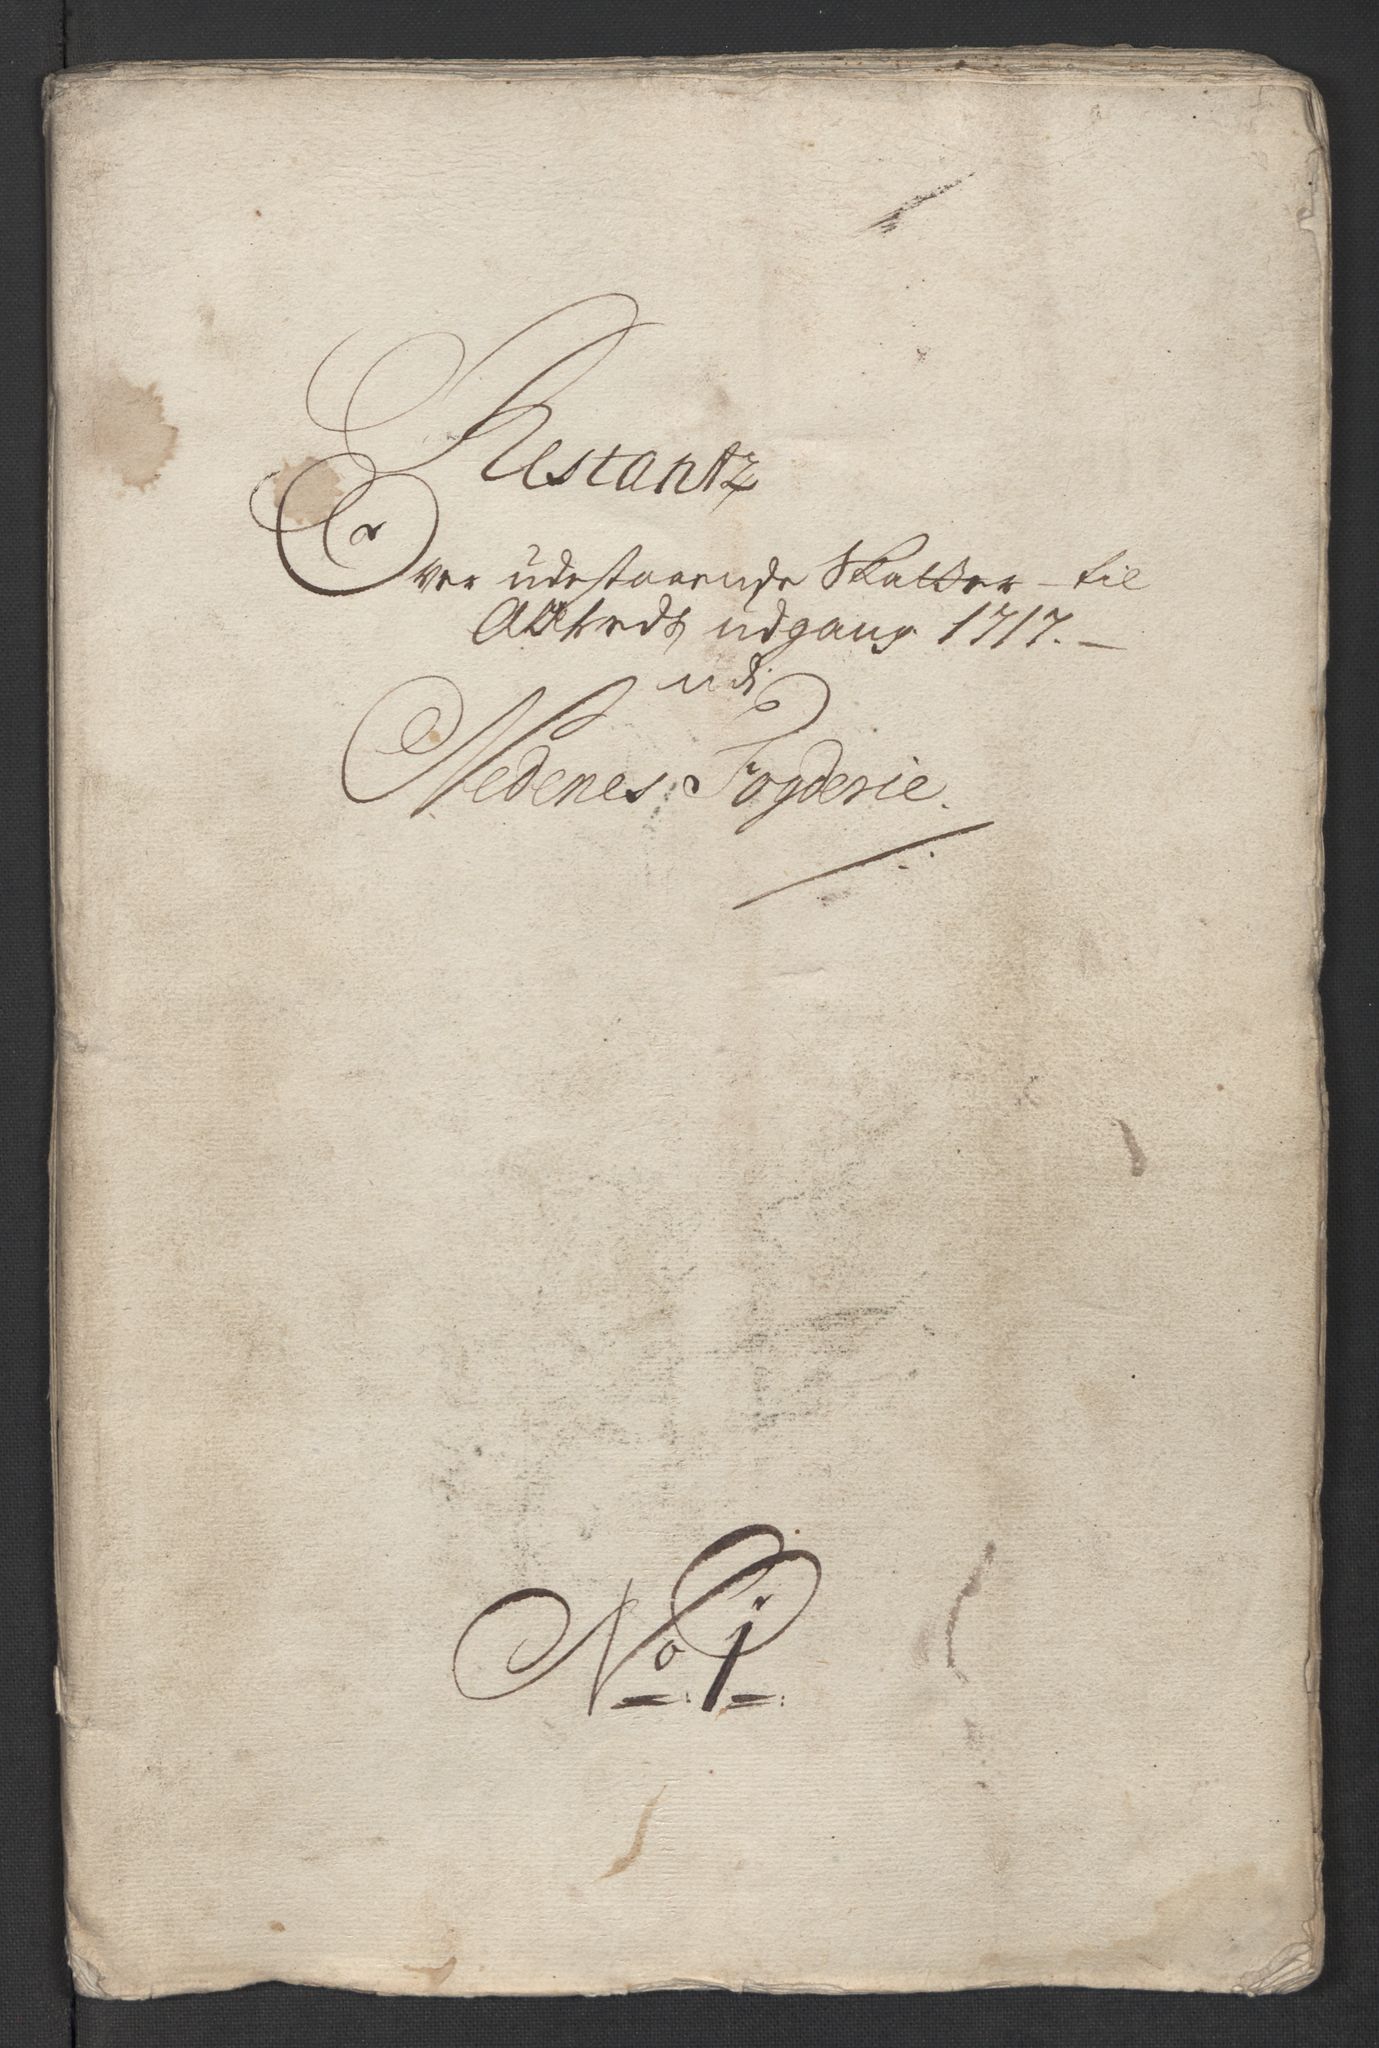 Restantz
Over udestaaende Skatter til
udgang 1717.
udi
Nedenes Fogderie.
No. 1.